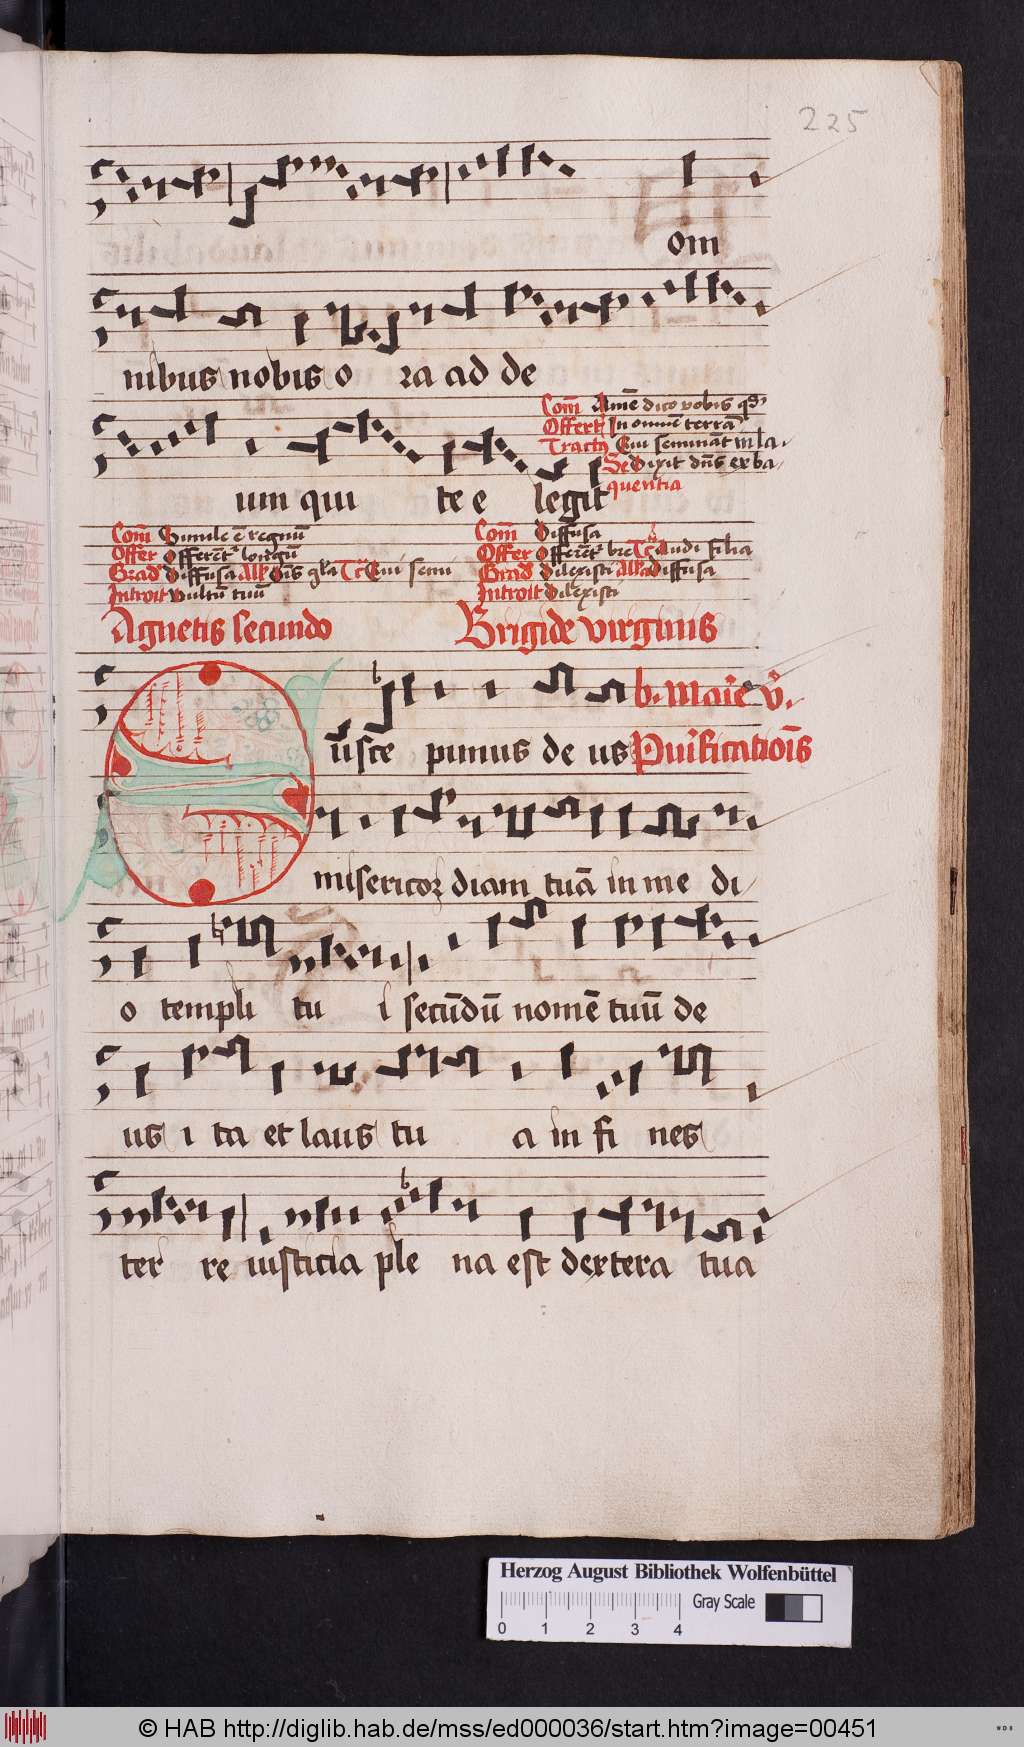 225
om
nibus nobis o ra ad de
Com̄ Amē dico vobis qd
Offert In omnem terrā
Tractꝰ Qui seminat in la
um qui te e legit
Se Dixit dn̄s ex ba
quentia
Com̄ Simile ē regnū
Offer Offerent longū
Grad Diffusa All Spēs Tct Qui semi
Introit Vultū tuū
Com̄ Diffusa
Offer Offerent bre Tct Audi filia
Grad Dilexisti Alla Diffusa
Introit Dilexisti
Agnetis secundo
Brigide virginis
b. marie v̄.
Suscepimus de us Purificationis
misericor diam tuā in me di
o templi tu i secūdū nomē tuū de
us i ta et laus tu a in fi nes
ter re iusticia ple na est dextera tua
Herzog August Bibliothek Wolfenbüttel
Gray Scale
0 1 2 3 4
© HAB http://diglib.hab.de/mss/ed000036/start.htm?image=00451